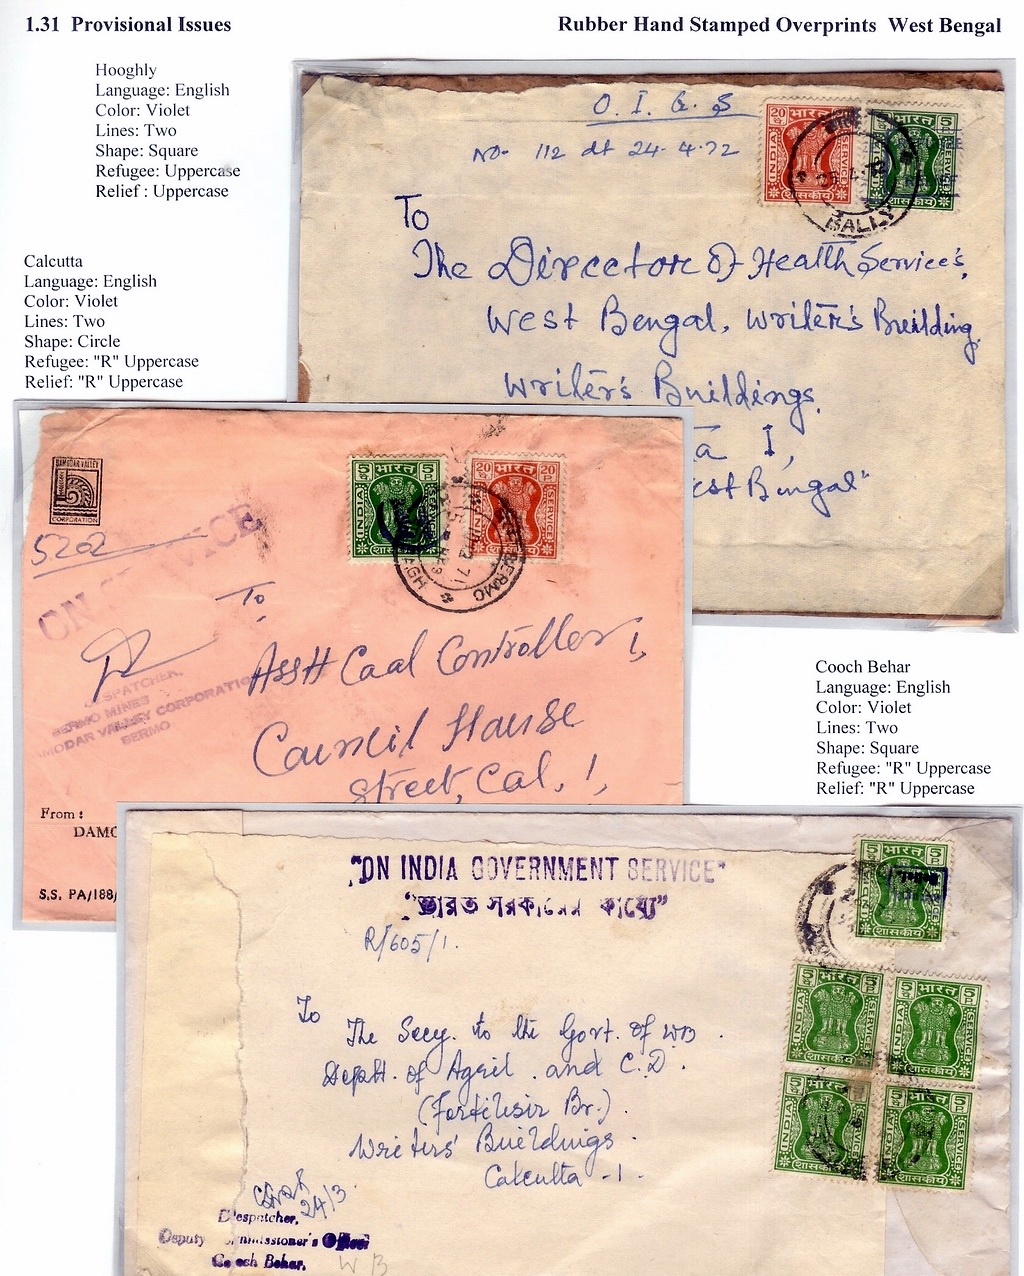 1.31 Provisional Issues
Rubber Hand Stamped Overprints West Bengal
Hooghly
Language: English
Color: Violet
Lines: Two
Shape: Square
Refugee: Uppercase
Relief : Uppercase
Calcutta
Language: English
Color: Violet
Lines: Two
Shape: Circle
Refugee: "R" Uppercase
Relief: "R" Uppercase
O. I. G. S
No- 112 dt 24-4-72
20 भारत 20
INDIA SERVICE
(शासकीय)
भारत 5
SERVICE
(शासकीय)
BALLY
To
The Director Of Health Service's,
West Bengal, Writer's Building,
Writer's Buildings,
I,
Bengal"
DAMODAR VALLEY
CORPORATION
5202
ON SERVICE
5 भारत 5
INDIA SERVICE
20 भारत 20
INDIA SERVICE
(शासकीय)
BERMO
To
Asstt Coal Controller,
Council House
Street, Cal, 1,
DESPATCHER,
BERMO MINES
DAMODAR VALLEY CORPORATION
BERMO
From :
DAMO
S.S. PA/188/
Cooch Behar
Language: English
Color: Violet
Lines: Two
Shape: Square
Refugee: "R" Uppercase
Relief: "R" Uppercase
"ON INDIA GOVERNMENT SERVICE"
"ভারত সরকারের কার্য্যে"
R/605/1.
5 भारत 5
INDIA SERVICE
(शासकीय)
5 भारत 5
INDIA SERVICE
(शासकीय)
5 भारत 5
INDIA SERVICE
(शासकीय)
5 भारत 5
INDIA SERVICE
(शासकीय)
5 भारत 5
INDIA SERVICE
(शासकीय)
To
The Secy. to the Govt. of WB.
Deptt. of Agril. and C.D.
(Fertilisir Br.).
Writers' Buildings.
Calcutta -1.
24/3.
Despatcher,
Deputy Commissioner's Office
Cooch Behar.
W B